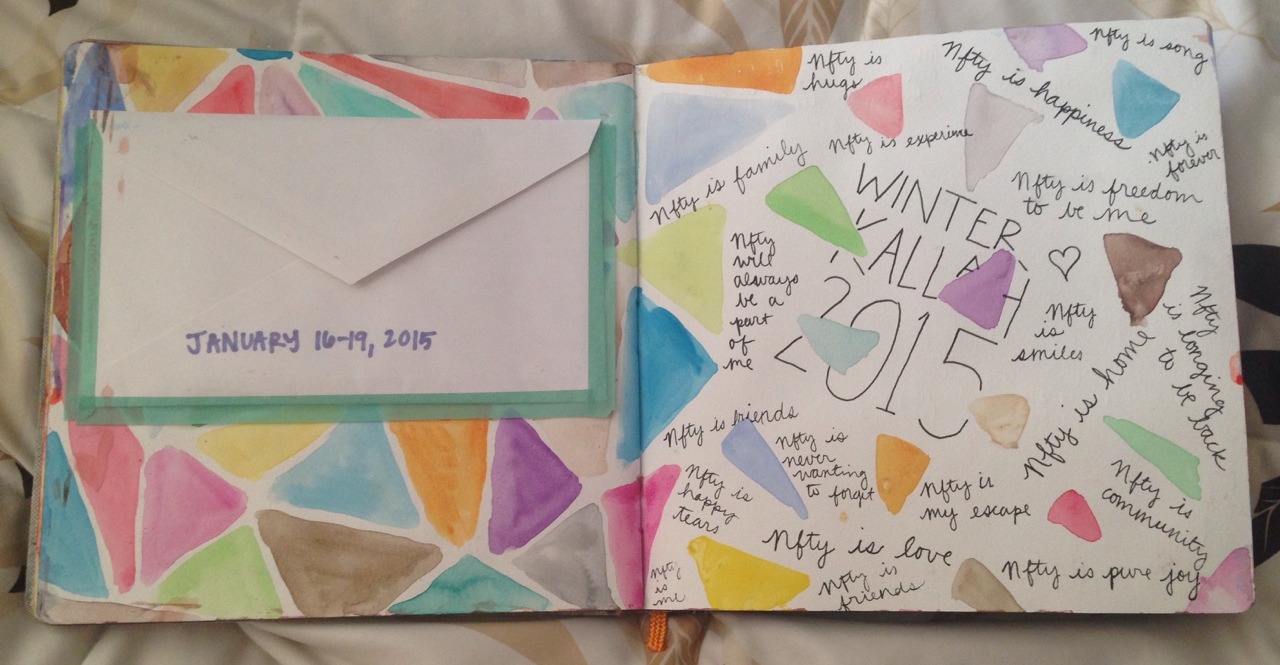 JANUARY 16-19, 2015
Nfty is
hugs
Nfty is song
Nfty is happiness
Nfty is
forever
Nfty is experience
Nfty is family
Nfty is freedom
to be me
WINTER
KALLAH
2015
Nfty
will
always
be a
part
of
me
Nfty
is
smiles
Nfty is home
Nfty
is longing
to be
back
Nfty is friends
Nfty is
never
wanting
to forget
Nfty is
happy
tears
Nfty is
my escape
Nfty is
community
Nfty is love
Nfty
is
me
Nfty is
friends
Nfty is pure joy